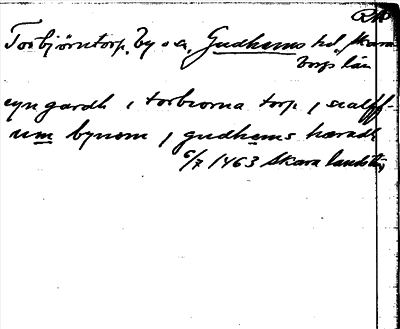 RA
Torbjörntorp, by o a, Gudhems hd, Skara
borgs län
eyn gardh i torbiorna torp i sialff-
um bynom i gudhems hæradt
6/7 1463 Skara landsting